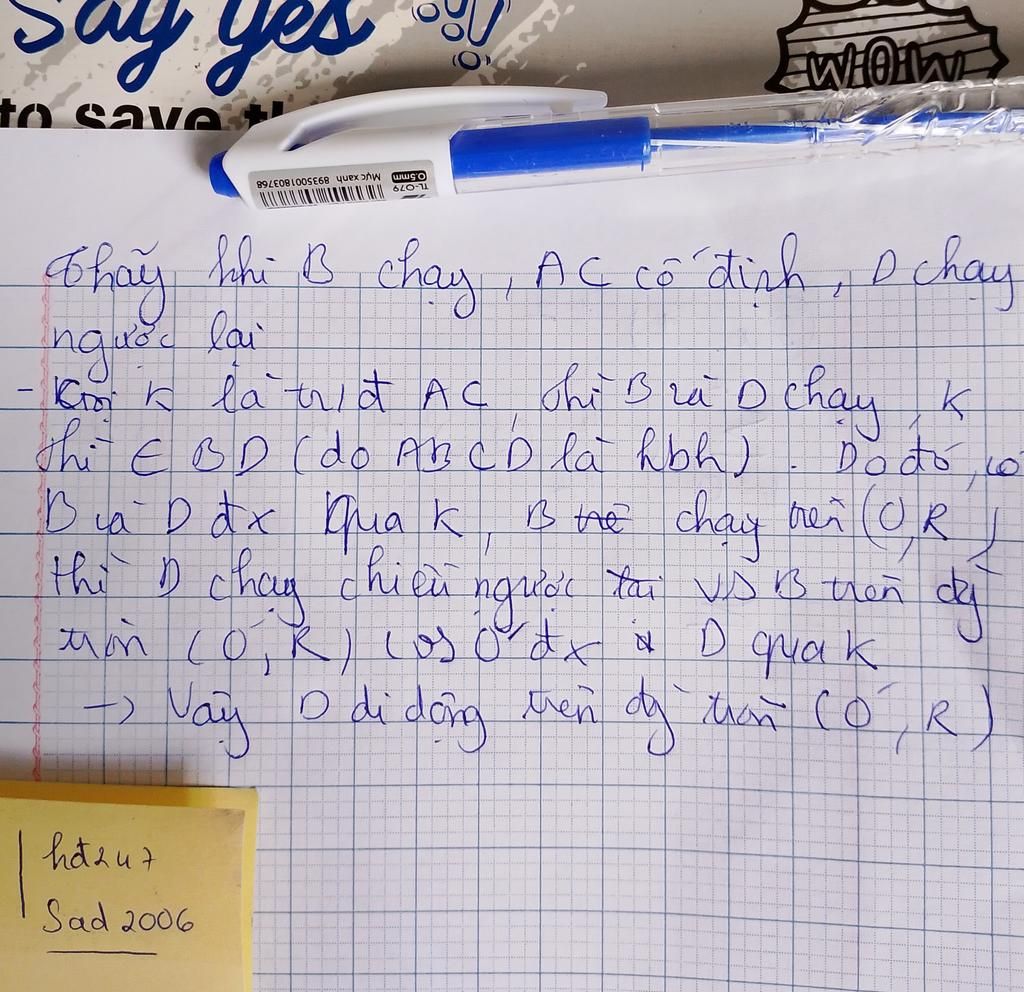 Say yes
to save th
WOW
TL-079
0.5mm
Mực xanh 8935001803768
Thấy khi B chạy, AC cố định, D chạy
ngược lại
- Gọi K là tr/đ AC, khi B và D chạy, K
thì ∈ BD (do ABCD là hbh). Do đó, có
B và D đx qua K, B chạy trên (O, R)
thì D chạy chiều ngược VS B trên đg
tròn (O', R) với O' đx O qua K
→ Vậy D di động trên đg tròn (O', R)
hđ247
Sad 2006